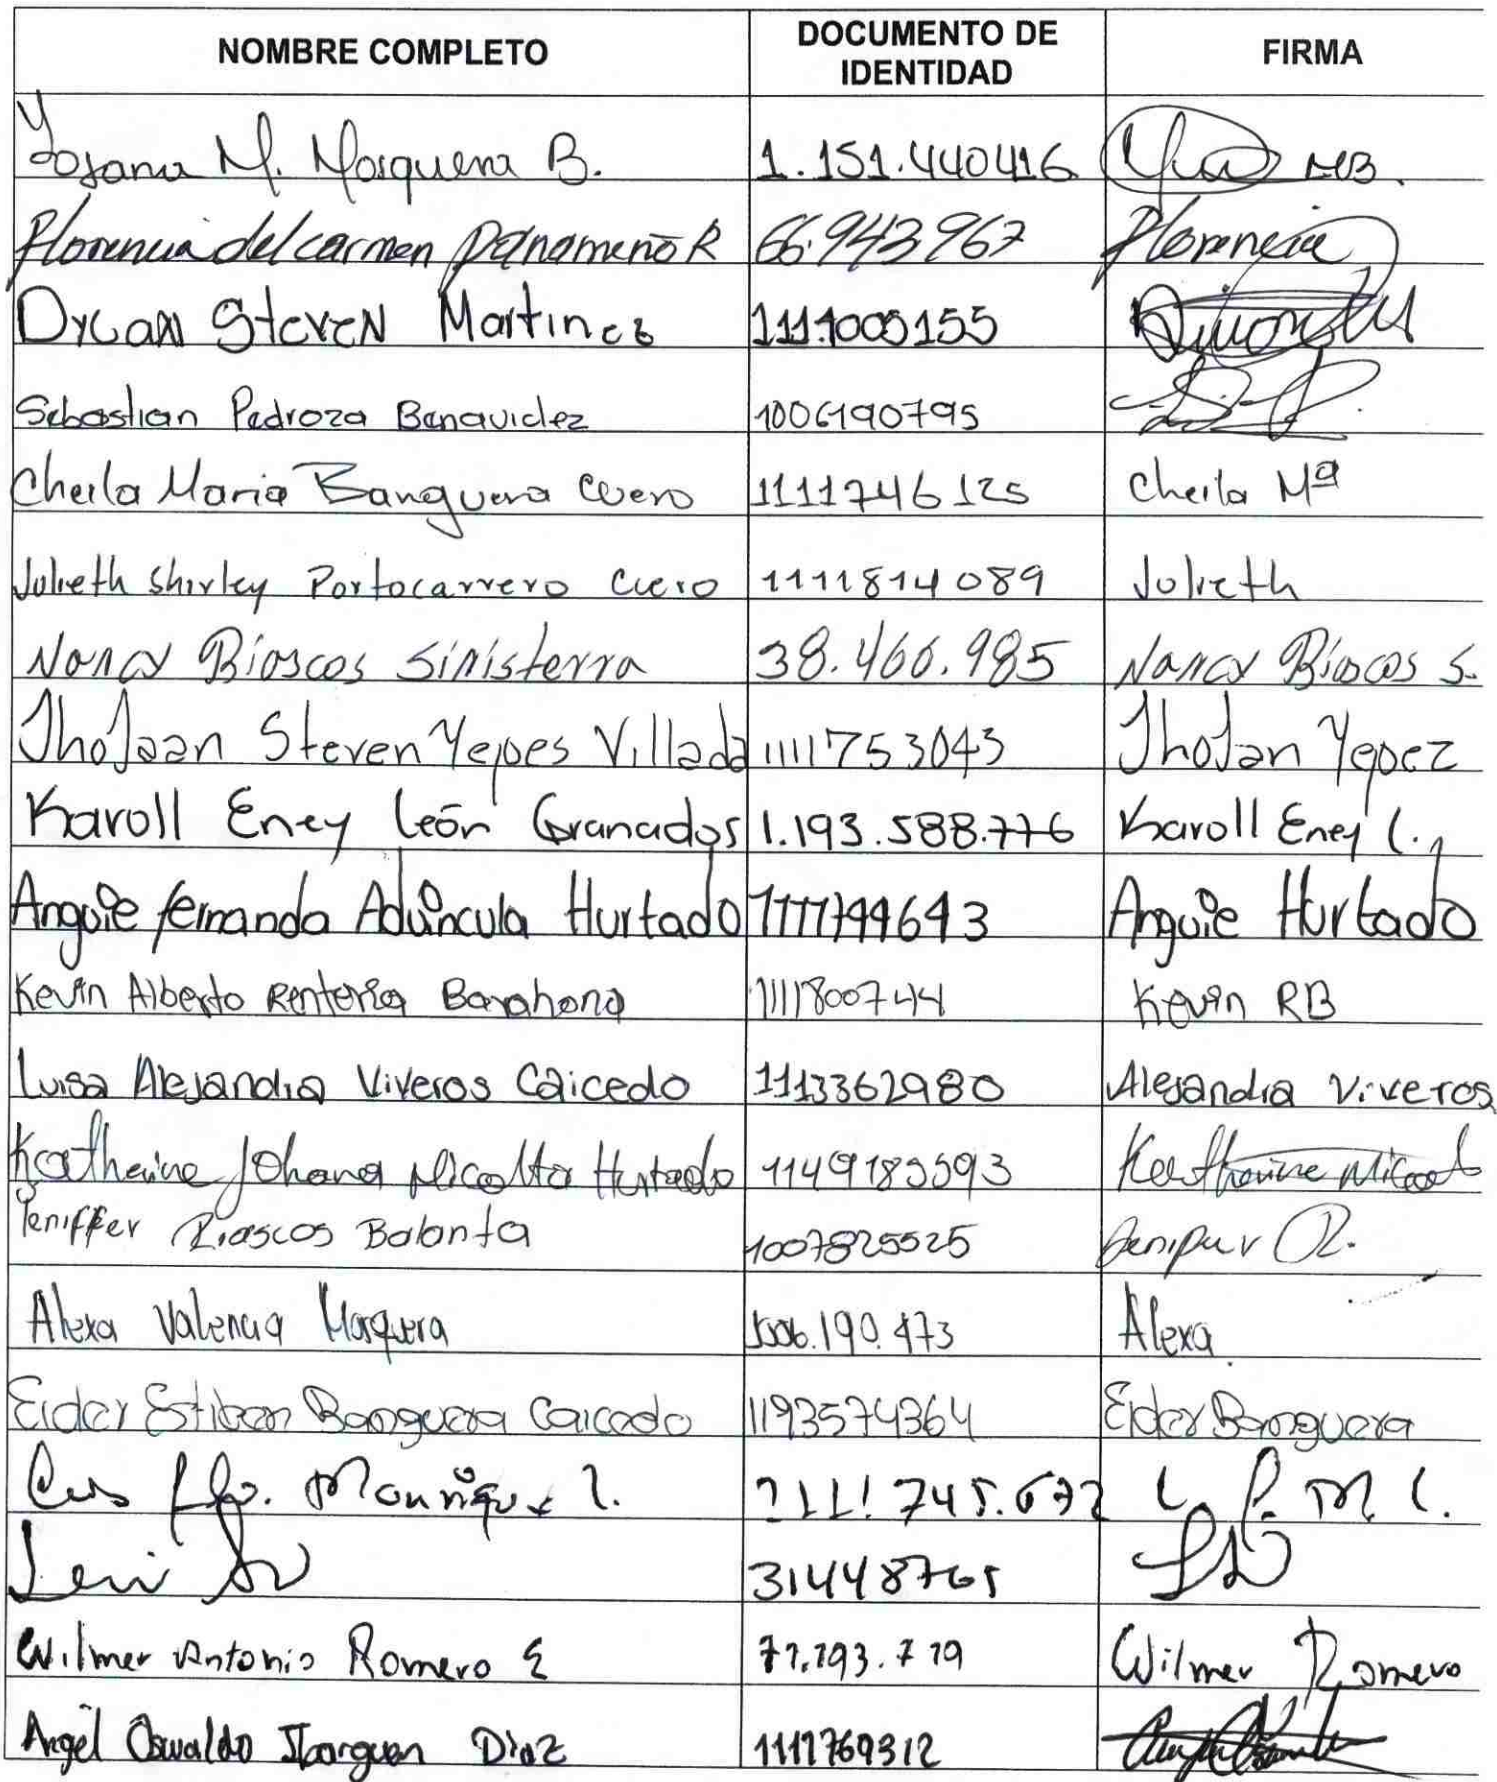 NOMBRE COMPLETO DOCUMENTO DE IDENTIDAD FIRMA
Yosana M. Mosquera B. 1.151.440416 MB.
Florencia del carmen panameño R 66.943967 Florencia
Dylan Steven Martinez 1111005155
Sebastian Pedroza Benavidez 1006190795
Cheila Maria Banguera Cuero 1111746125 Cheila Mª
Julieth Shirley Portocarrero Cuero 1111814089 Julieth
Nancy Riascos Sinisterra 38.466.985 Nancy Riascos S.
JhoJaan Steven Yepes Villada 1111753043 JhoJan Yepez
Karoll Eney León Granados 1.193.588.776 Karoll Eney L.
Anguie fernanda Aduincula Hurtado 1111799643 Anguie Hurtado
Kevin Alberto Renteria Barahona 1111800744 Kevin RB
Luisa Alejandra Viveros Caicedo 1113362980 Alejandra Viveros
Katherine Johana Micolta Hurtado 1149183593 Katherine Micolt
Yeniffer Riascos Balanta 1007825525 R.
Alexa Valencia Mosquera 1006.190.473 Alexa
Eider Estiben Banguera Caicedo 1193574364 Eider Banguera
Manrique L. 1111.745.672 L. P. M L.
31448765
Wilmer Antonio Romero E 71.793.719 Wilmer Romero
Angel Oswaldo Ibarguen Diaz 1111769312